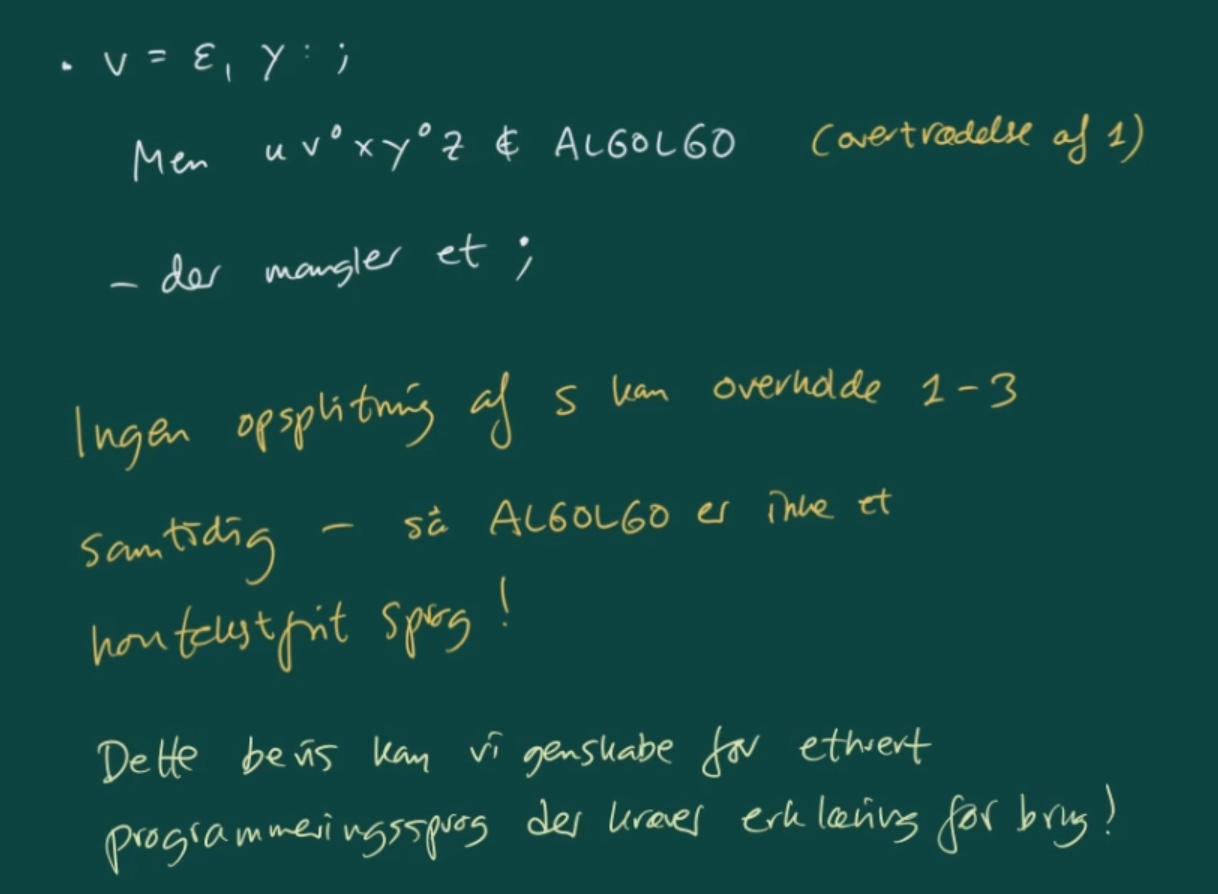 • v = ε, y : ;
Men uv⁰xy⁰z ∉ ALGOLGO (overtrædelse af 1)
– der mangler et ;
Ingen opsplitning af s kan overholde 1-3
samtidig – så ALGOLGO er ikke et
kontekstfrit sprog!
Dette bevis kan vi genskabe for ethvert
programmeringssprog der kræver erklæring før brug!